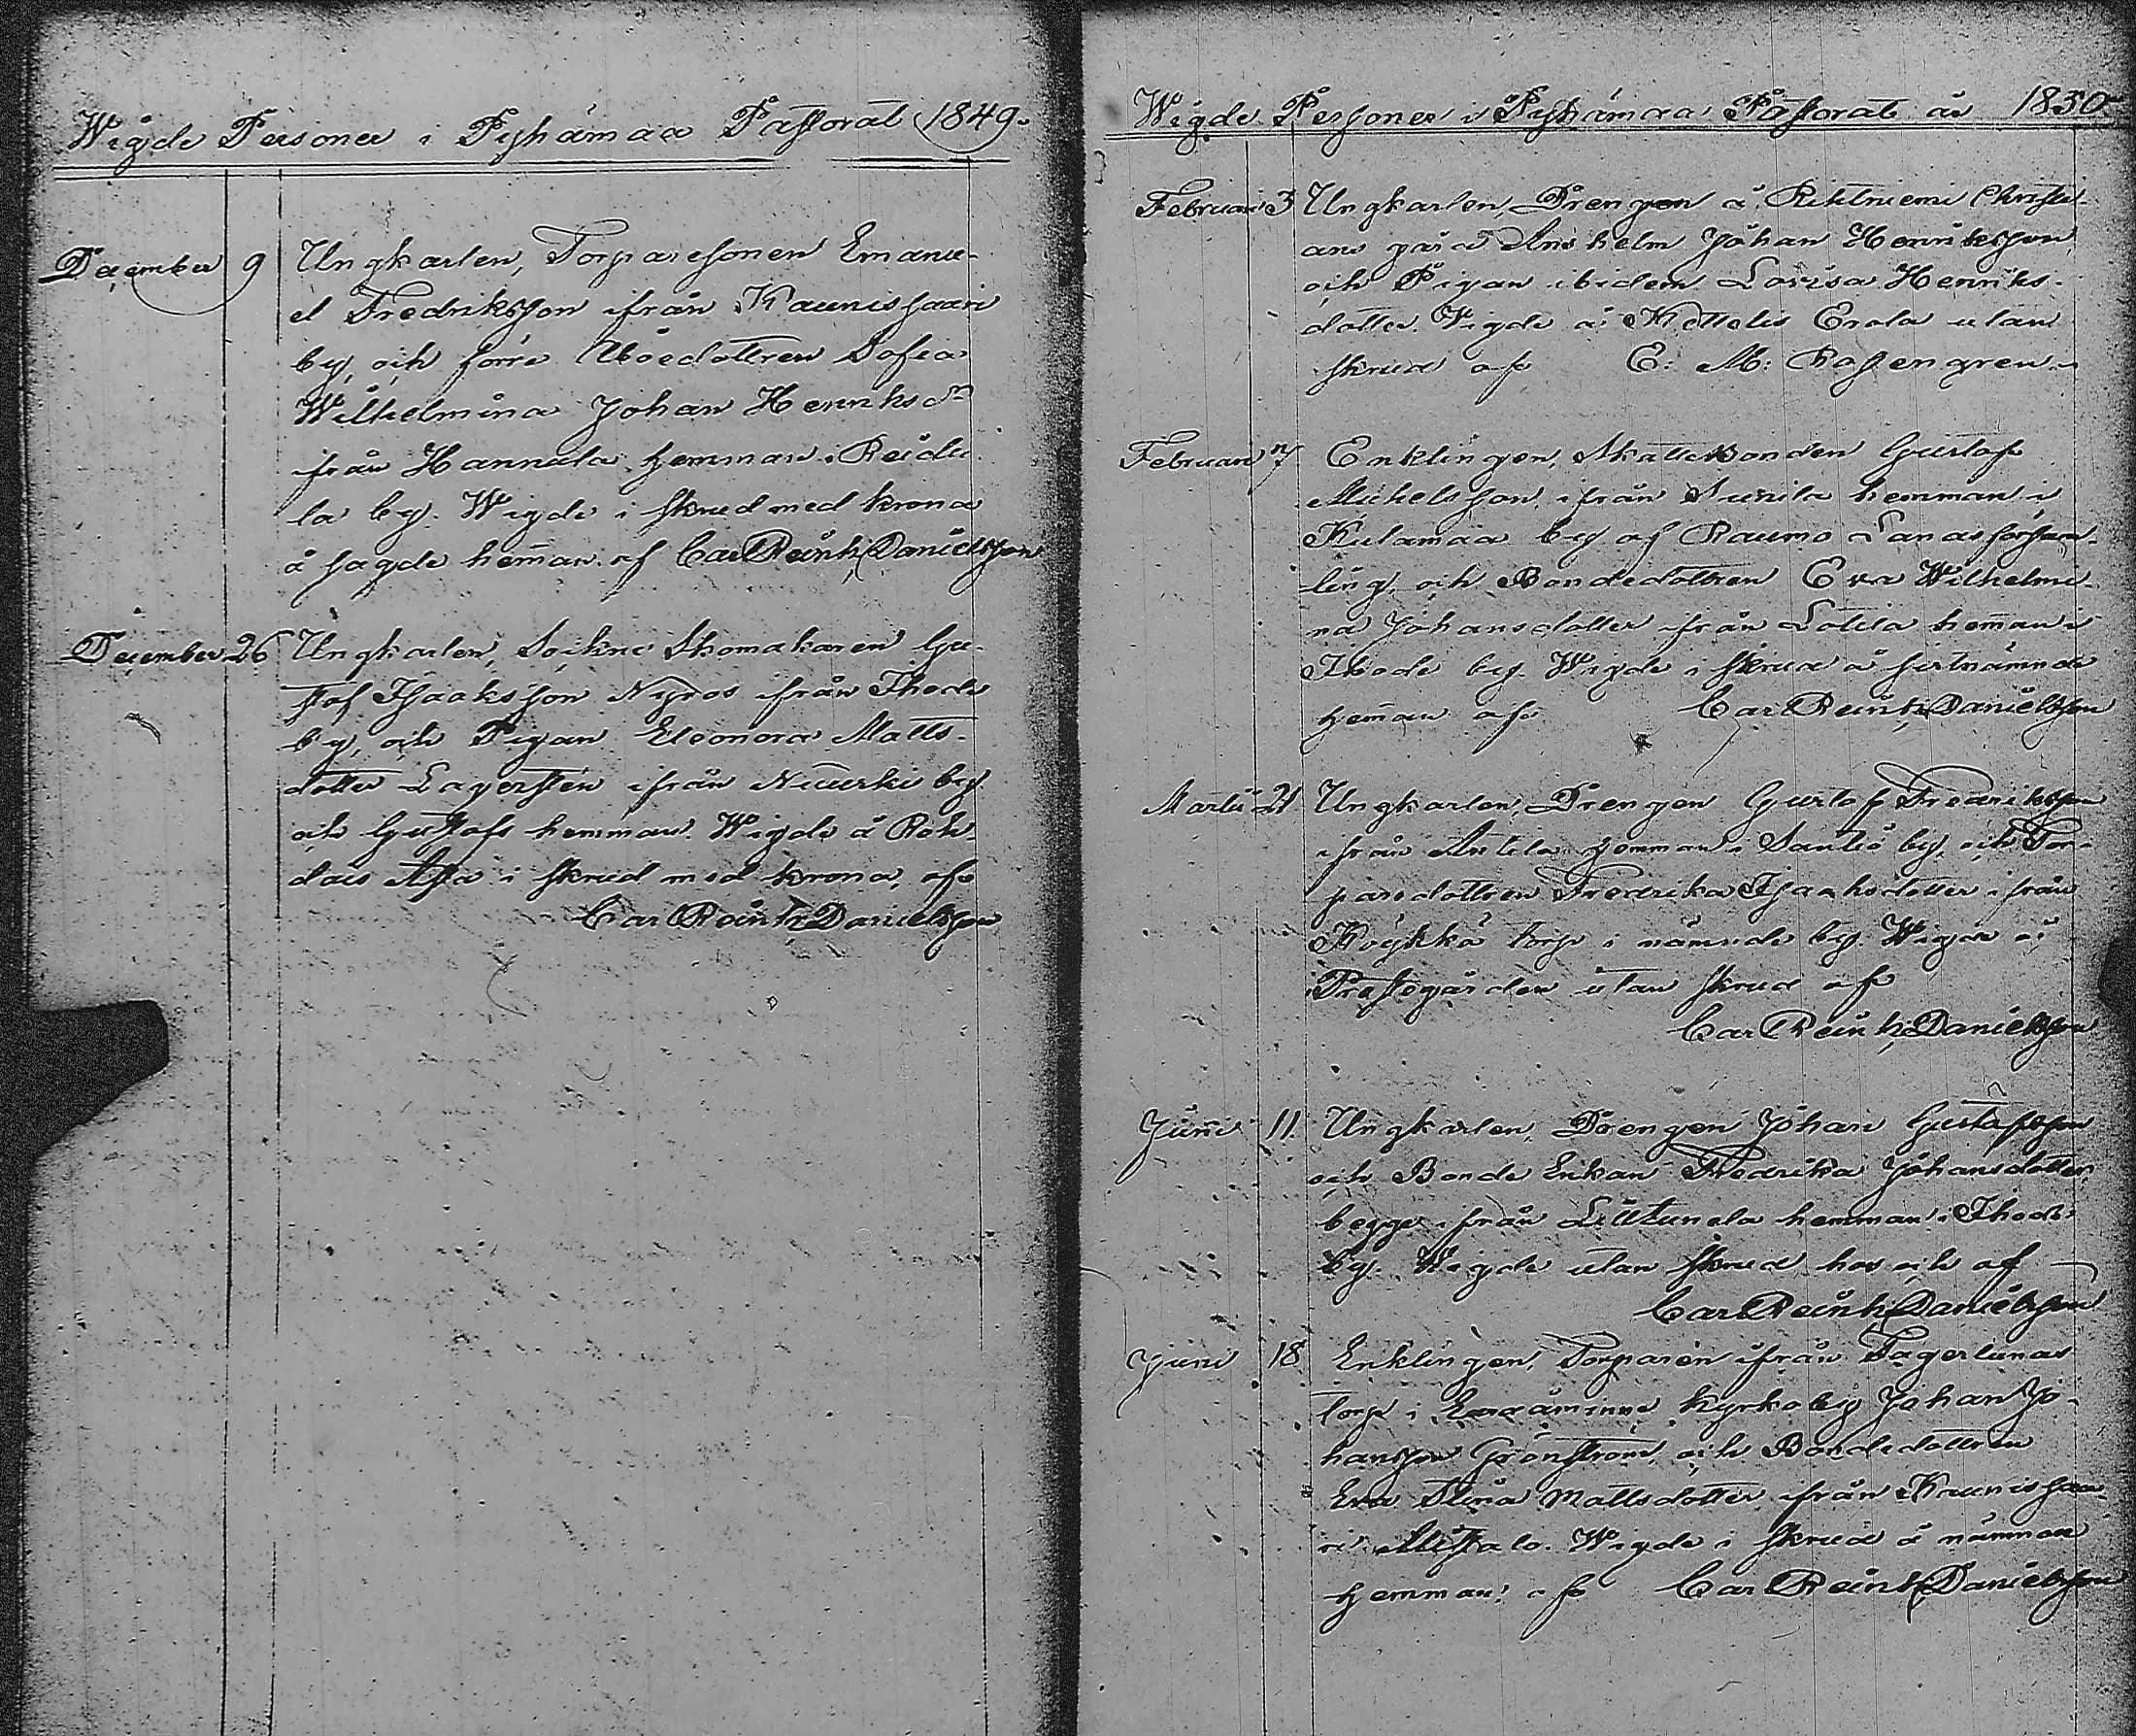 Wigde Personer i Pyhämaa Pastorat 1849.
December 9 Ungkarlen, Torparesonen Emanu-
el Fredriksson ifrån Kaunissaari
by, och förre dottren Sofia
Wilhelmina Johan Henriksdr
ifrån Hannula hemman i Reidi-
la by. Wigde i skrud med krona
å sagde hem̄an af Carl Reinh. Danielsson
December 26 Ungkarlen, Sockne Skomakaren Gu-
staf Isaksson Nyros ifrån Ihode
by, och Pigan Eleonora Matts-
dotter Lagerstén ifrån by
och Gustafs hemman. Wigde å Roh-
dais i skrud med krona, af
Carl Reinh. Danielsson
Wigde Personer i Pyhämaa Pastorat år 1850
Februari 3 Ungkarlen, Drengen å Rihtniemi Christi-
ans Anshelm Johan Henriksson
och Pigan ibidem Lovisa Henriks-
dotter. Wigde å Kettelis Erola utan
skrud af E: M: Rosengren
Februari 7 Enklingen, Skattebonden Gustaf
Michelsson, ifrån hemman i
Kulamaa by af Raumo Lands försam-
ling, och Bondedottren Eva Wilhelmi-
na Johansdotter ifrån Lotila hem̄an i
Ihode by. Wigde i skrud å sistnämnde
hem̄an af Carl Reinh. Danielsson
Martii 21 Ungkarlen, Drengen Gustaf Fredriksson
ifrån Antila hemman i Santiö by, och Tor-
paredottren Fredrika Isaksdotter ifrån
Köykkä torp i nämnde by. Wigde i
Prestgården utan skrud af
Carl Reinh. Danielsson
Junii 11. Ungkarlen, Drengen Johan Gustafsson
och Bonde Enkan Fredrika Johansdotter,
begge ifrån hemman i Ihode
by. Wigde utan skrud hos och af
Carl Reinh. Danielsson
Junii 18 Enklingen, Torparen ifrån Fagerlunds
torp i Euraåminne Kyrkoby Johan Jo-
hansson Grönström, och Bondedottren
Eva Stina Mattsdotter ifrån Kaunissaa-
ri Alistalo. Wigde i skrud å nämnde
hemman af Carl Reinh. Danielsson